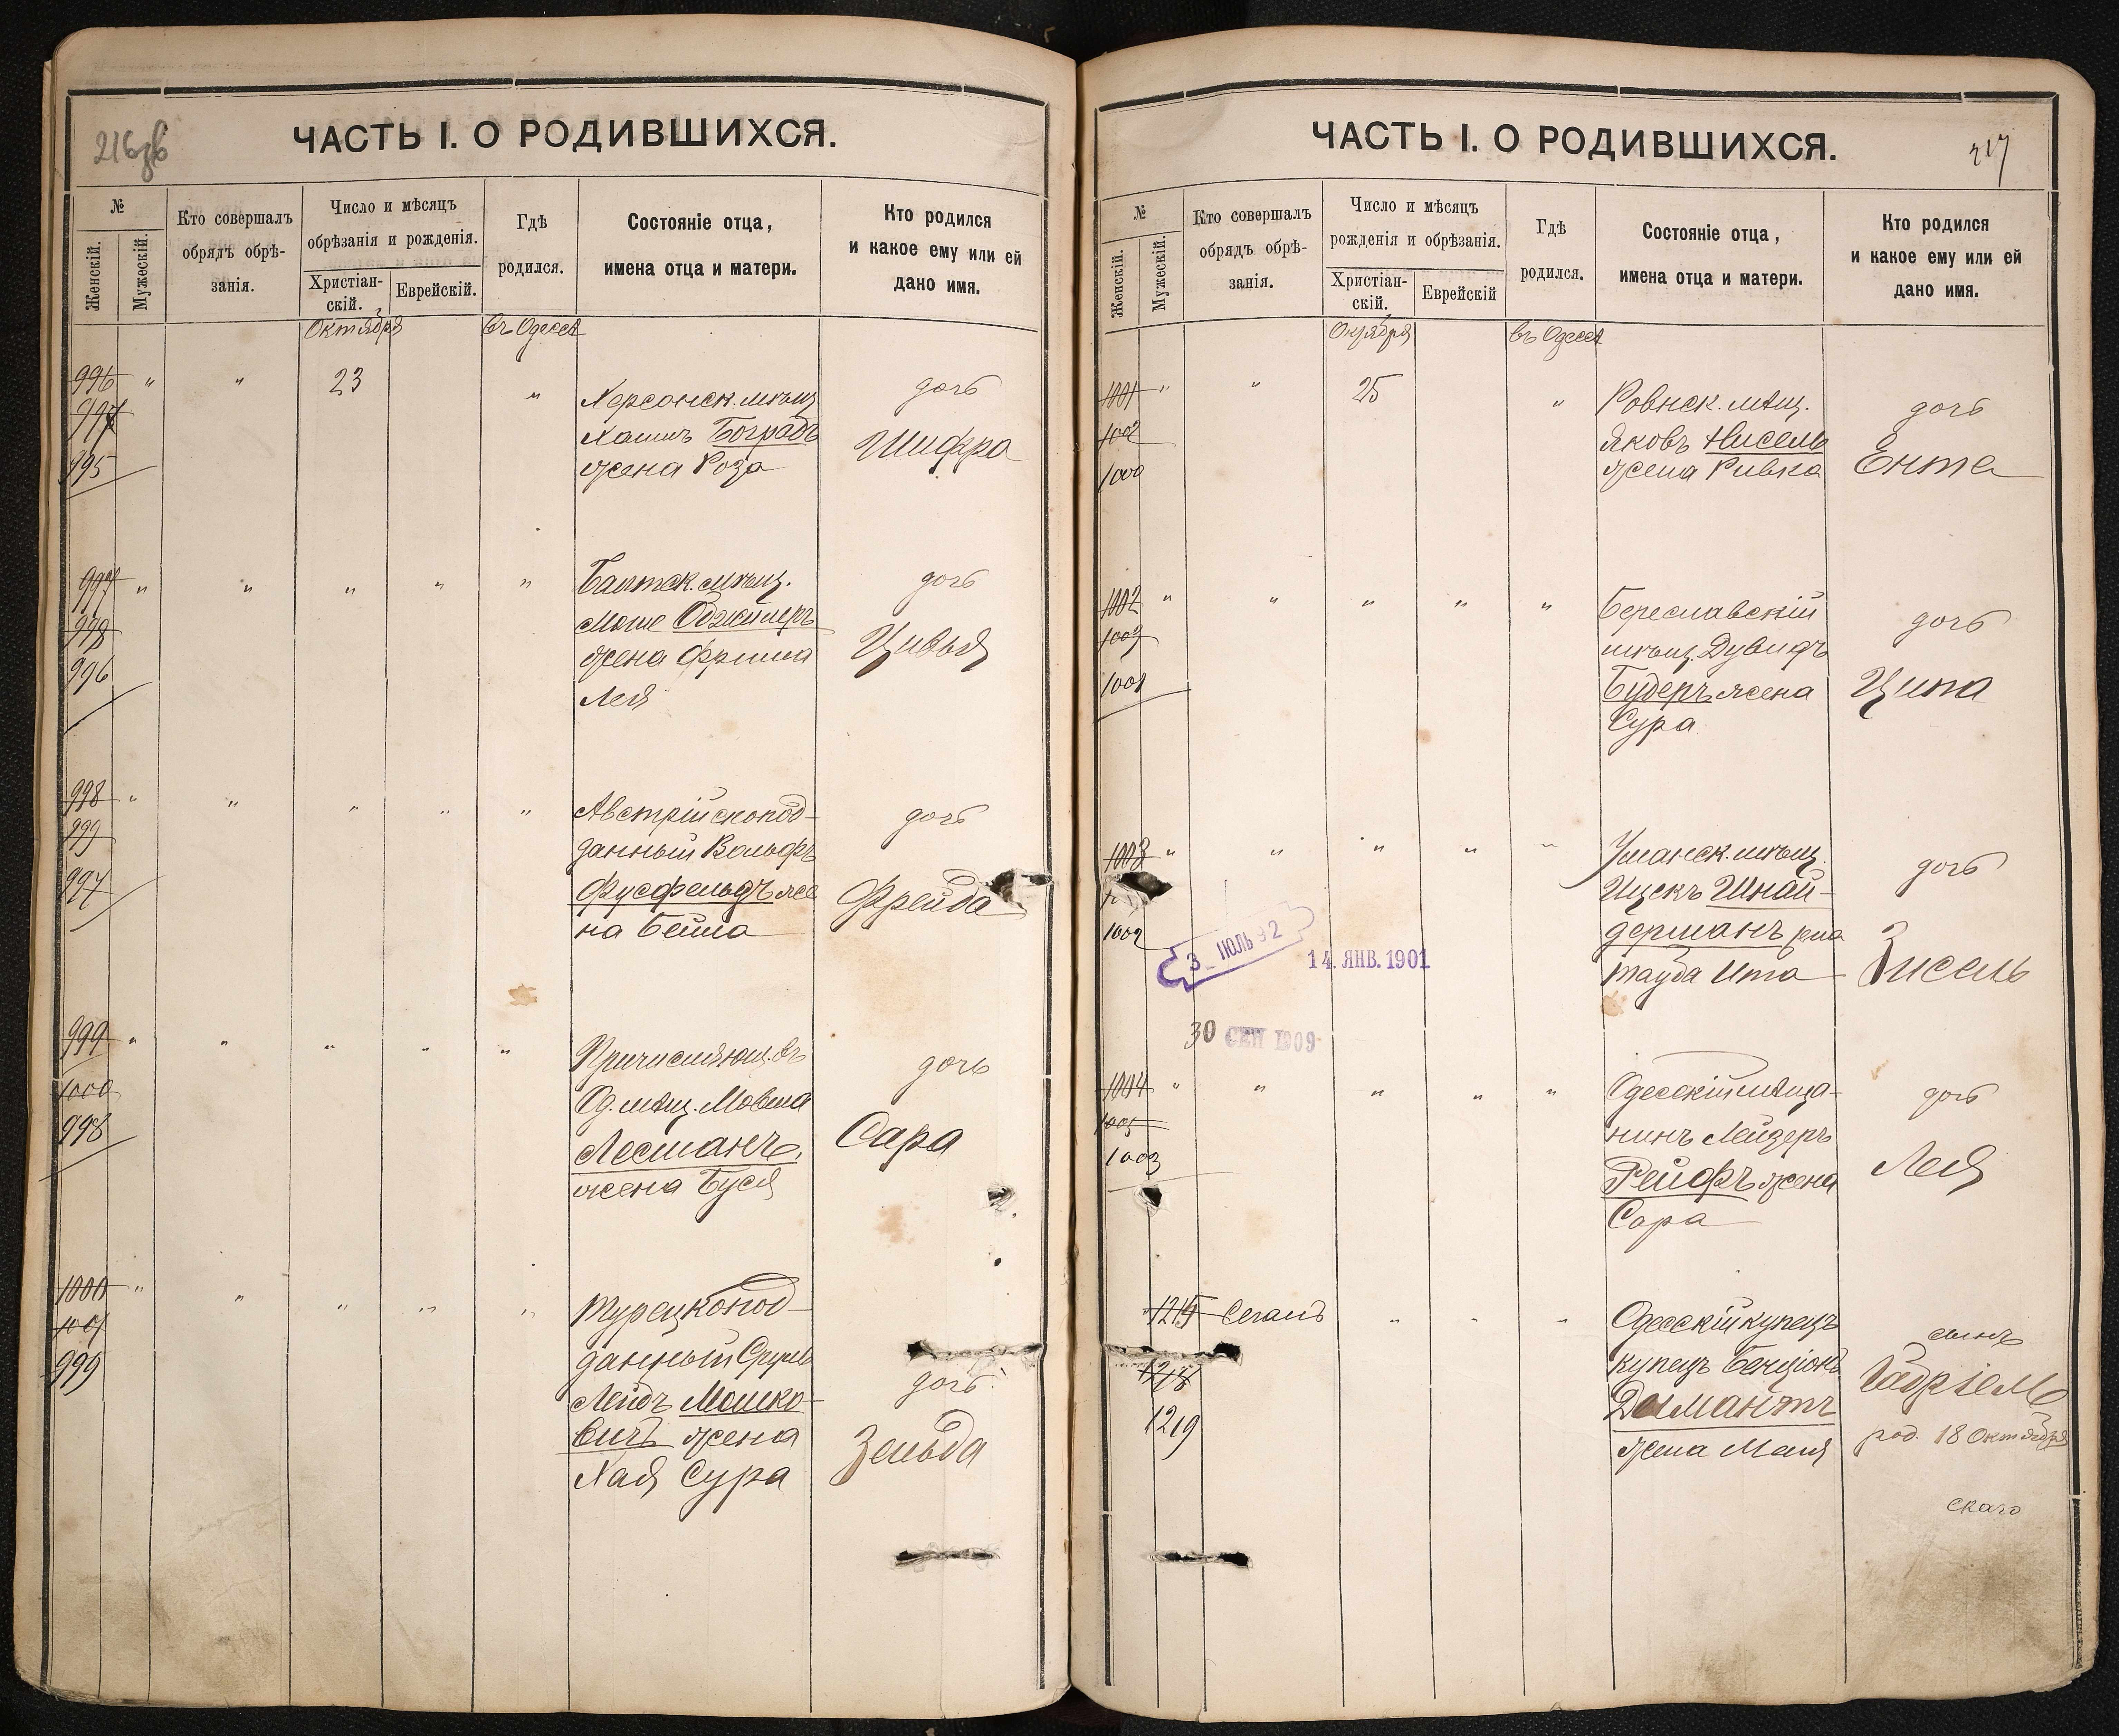 216об
ЧАСТЬ I. О РОДИВШИХСЯ.
№
Женскій.
Мужескій.
Кто совершалъ
обрядъ обрѣ-
занія.
Число и мѣсяцъ
обрѣзанія и рожденія.
Христіан-
скій.
Еврейскій.
Гдѣ
родился.
Состояніе отца,
имена отца и матери.
Кто родился
и какое ему или ей
дано имя.
Октября
въ Одессѣ
996 " " 23 " Херсонск. мѣщ. дочь
997 Хаимъ Боградъ Шифра
995 жена Роза
997 " " " " " Балтск. мѣщ. дочь
998 Моше
жена Фрима Цивья
996
Лея
998 " " " " " Австрійскопод- дочь
999 данный Вольфъ
997 Фусфельдъ же Фрейда
на Бейла
999 " " " " " Причисляющ. въ дочь
1000 Од. мѣщ. Мовша
998 Лесманъ, Сара
жена Буся
1000 " " " " " Турецкопод-
1001 данный Сруль
999 Лейбъ Мошко- дочь
вичъ жена Зельда
Хая Сура
217
ЧАСТЬ I. О РОДИВШИХСЯ.
№
Женскій.
Мужескій.
Кто совершалъ
обрядъ обрѣ-
занія.
Число и мѣсяцъ
рожденія и обрѣзанія.
Христіан-
скій.
Еврейскій
Гдѣ
родился.
Состояніе отца,
имена отца и матери.
Кто родился
и какое ему или ей
дано имя.
Октября
въ Одессѣ
1001 " " 25 " Ровнск. мѣщ. дочь
1002 Яковъ Нисель Ента
1000 жена Ривка
1002 " " " " " Береславскій дочь
1003 мѣщ. Дувидъ
1001 Будеръ жена Ципа
Сура
1003 " " " " " Уманск. мѣщ. дочь
Ицекъ Шнай-
1002 дерманъ жена Зисель
Тауба Ита
3 ІЮЛЬ 92
14. ЯНВ. 1901
30 СЕН 1909
1004 " " " " " Одесскій мѣща- дочь
1005 нинъ Лейзеръ
1003 Рейфъ жена Лея
Сара
1215 Сегалъ " " " Одесскій купецъ сынъ
1218 купецъ Бенціонъ Габріель
1219 Димантъ род. 18 Октября
жена Маня
скаго